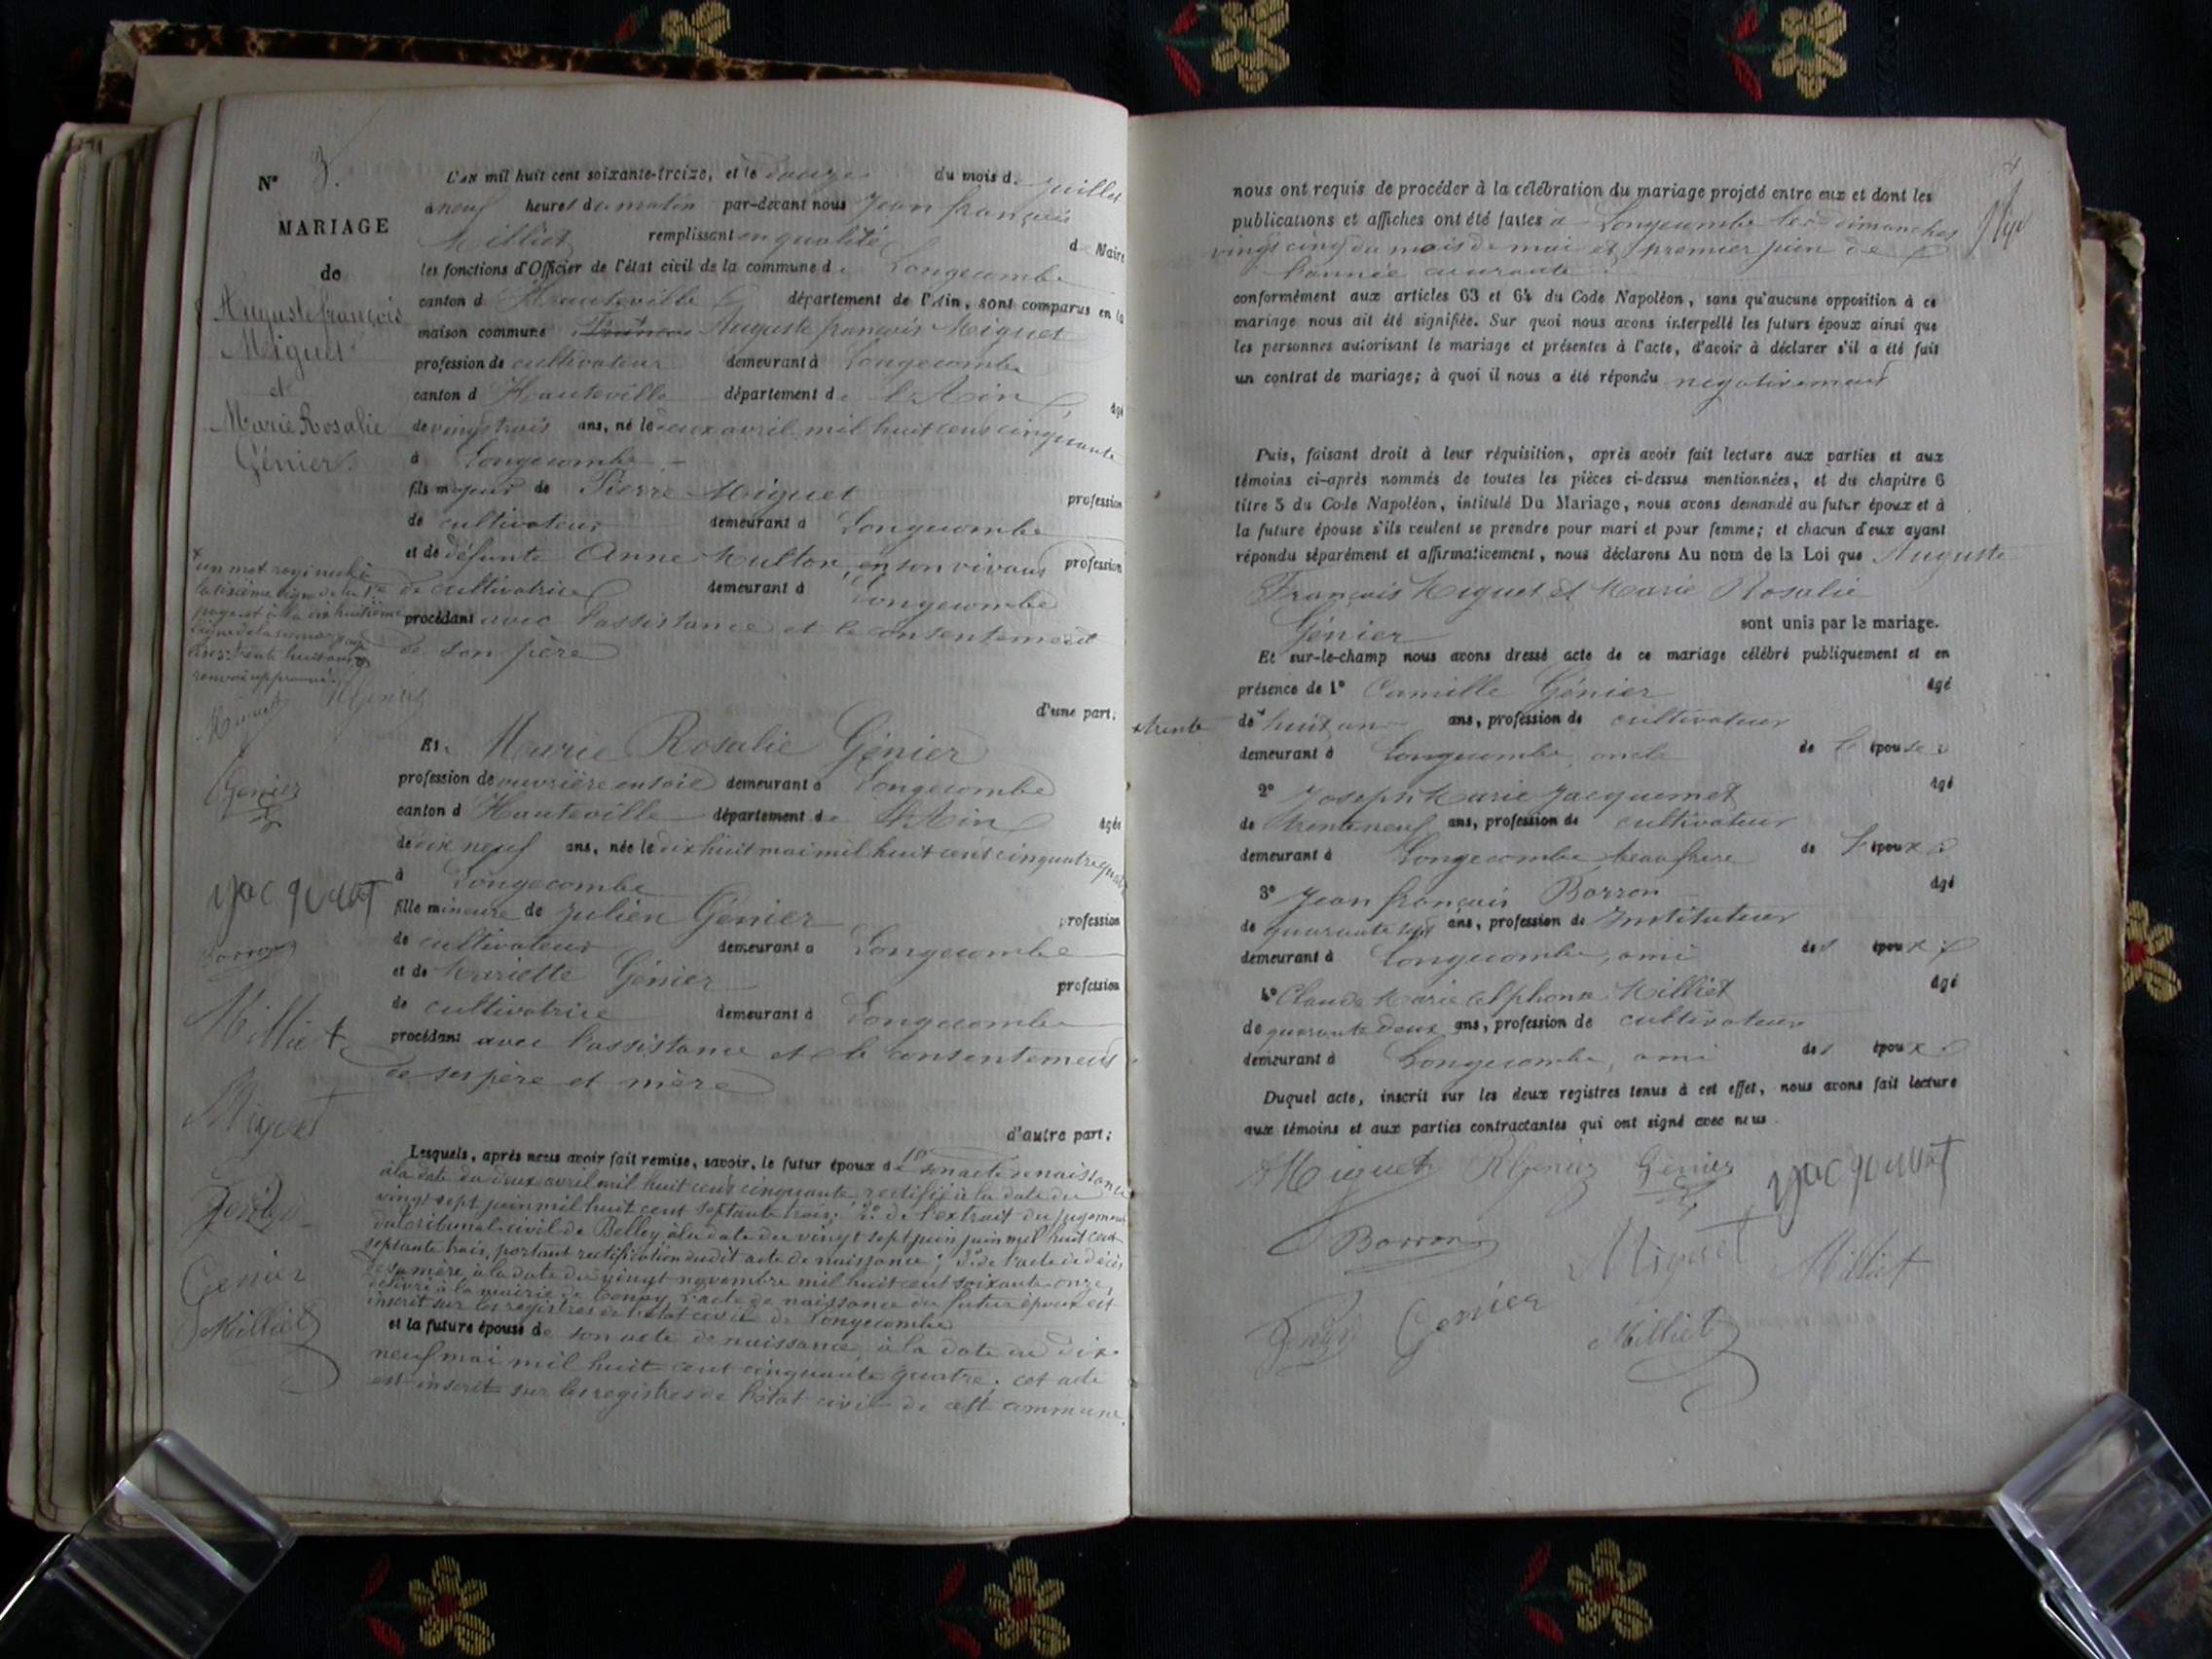 N° 3.
MARIAGE
de
Auguste françois
Miguet
et
Marie Rosalie
Génier.
L'an mil huit cent soixante-treize, et le douze du mois de juillet
à neuf heures du matin par-devant nous Jean françois
Milliet remplissant en qualité de Maire
les fonctions d'Officier de l'état civil de la commune de Longecombe
canton d'Hauteville département de l'Ain, sont comparus en la
maison commune Auguste françois Miguet
profession de cultivateur demeurant à Longecombe
canton d'Hauteville département de l'Ain âgé
de vingt trois ans, né le deux avril mil huit cent cinquante
à Longecombe
fils majeur de Pierre Miguet profession
de cultivateur demeurant à Longecombe
et de défunte Anne en son vivant profession
de cultivatrice demeurant à Longecombe
procédant avec l'assistance et le consentement
de son père
d'une part;
Et Marie Rosalie Génier
profession de ouvrière en soie demeurant à Longecombe
canton d'Hauteville département de l'Ain âgée
de dix neuf ans, née le dix huit mai mil huit cent cinquante quatre
à Longecombe
fille mineure de Julien Génier profession
de cultivateur demeurant à Longecombe
et de Mariette Génier profession
de cultivatrice demeurant à Longecombe
procédant avec l'assistance et le consentement
de ses père et mère
d'autre part;
Lesquels, après nous avoir fait remise, savoir, le futur époux de 1° son acte de naissance
à la date du deux avril mil huit cent cinquante, rectifié à la date du
vingt sept juin mil huit cent septante trois; 2° de l'extrait du jugement
du tribunal civil de Belley à la date du vingt sept juin juin mil huit cent
septante trois, portant rectification dudit acte de naissance; 3° de l'acte de décès
de sa mère à la date du vingt novembre mil huit cent soixante onze,
délivré à la mairie de Tenay. L'acte de naissance du futur époux est
inscrit sur les registres de l'état civil de Longecombe
et la future épouse de son acte de naissance, à la date du dix
neuf mai mil huit cent cinquante quatre; cet acte
est inscrit sur les registres de l'état civil de cette commune.
x un mot rayé nul à
la sixième ligne de la 1re
page et à la dix huitième
ligne de la seconde page
lisez: trente huit ans
renvoi approuvé.
Miguet RGénier
Génier
Jacquemet
Borron
Milliet
Miguet
Génier
Milliet
nous ont requis de procéder à la célébration du mariage projeté entre eux et dont les
publications et affiches ont été faites à Longecombe les dimanches
vingt cinq du mois de mai et premier juin de
l'année courante
conformément aux articles 63 et 64 du Code Napoléon, sans qu'aucune opposition à ce
mariage nous ait été signifiée. Sur quoi nous avons interpellé les futurs époux ainsi que
les personnes autorisant le mariage et présentes à l'acte, d'avoir à déclarer s'il a été fait
un contrat de mariage; à quoi il nous a été répondu négativement
Puis, faisant droit à leur réquisition, après avoir fait lecture aux parties et aux
témoins ci-après nommés de toutes les pièces ci-dessus mentionnées, et du chapitre 6
titre 5 du Code Napoléon, intitulé Du Mariage, nous avons demandé au futur époux et à
la future épouse s'ils veulent se prendre pour mari et pour femme; et chacun d'eux ayant
répondu séparément et affirmativement, nous déclarons Au nom de la Loi que Auguste
François Miguet et Marie Rosalie
Génier sont unis par le mariage.
Et sur-le-champ nous avons dressé acte de ce mariage célébré publiquement et en
présence de 1° Camille Génier âgé
x trente de x huit ans ans, profession de cultivateur
demeurant à Longecombe, oncle de l'épouse
2° Joseph Marie Jacquemet âgé
de trente neuf ans, profession de cultivateur
demeurant à Longecombe beau frère de l'époux
3° Jean françois Borron âgé
de quarante sept ans, profession de Instituteur
demeurant à Longecombe, ami des époux
4° Claude Marie Alphonse Milliet âgé
de quarante deux ans, profession de cultivateur
demeurant à Longecombe, ami des époux
Duquel acte, inscrit sur les deux registres tenus à cet effet, nous avons fait lecture
aux témoins et aux parties contractantes qui ont signé avec nous.
AMiguet RGénier Génier Jacquemet
Borron Miguet Milliet
Génier Milliet